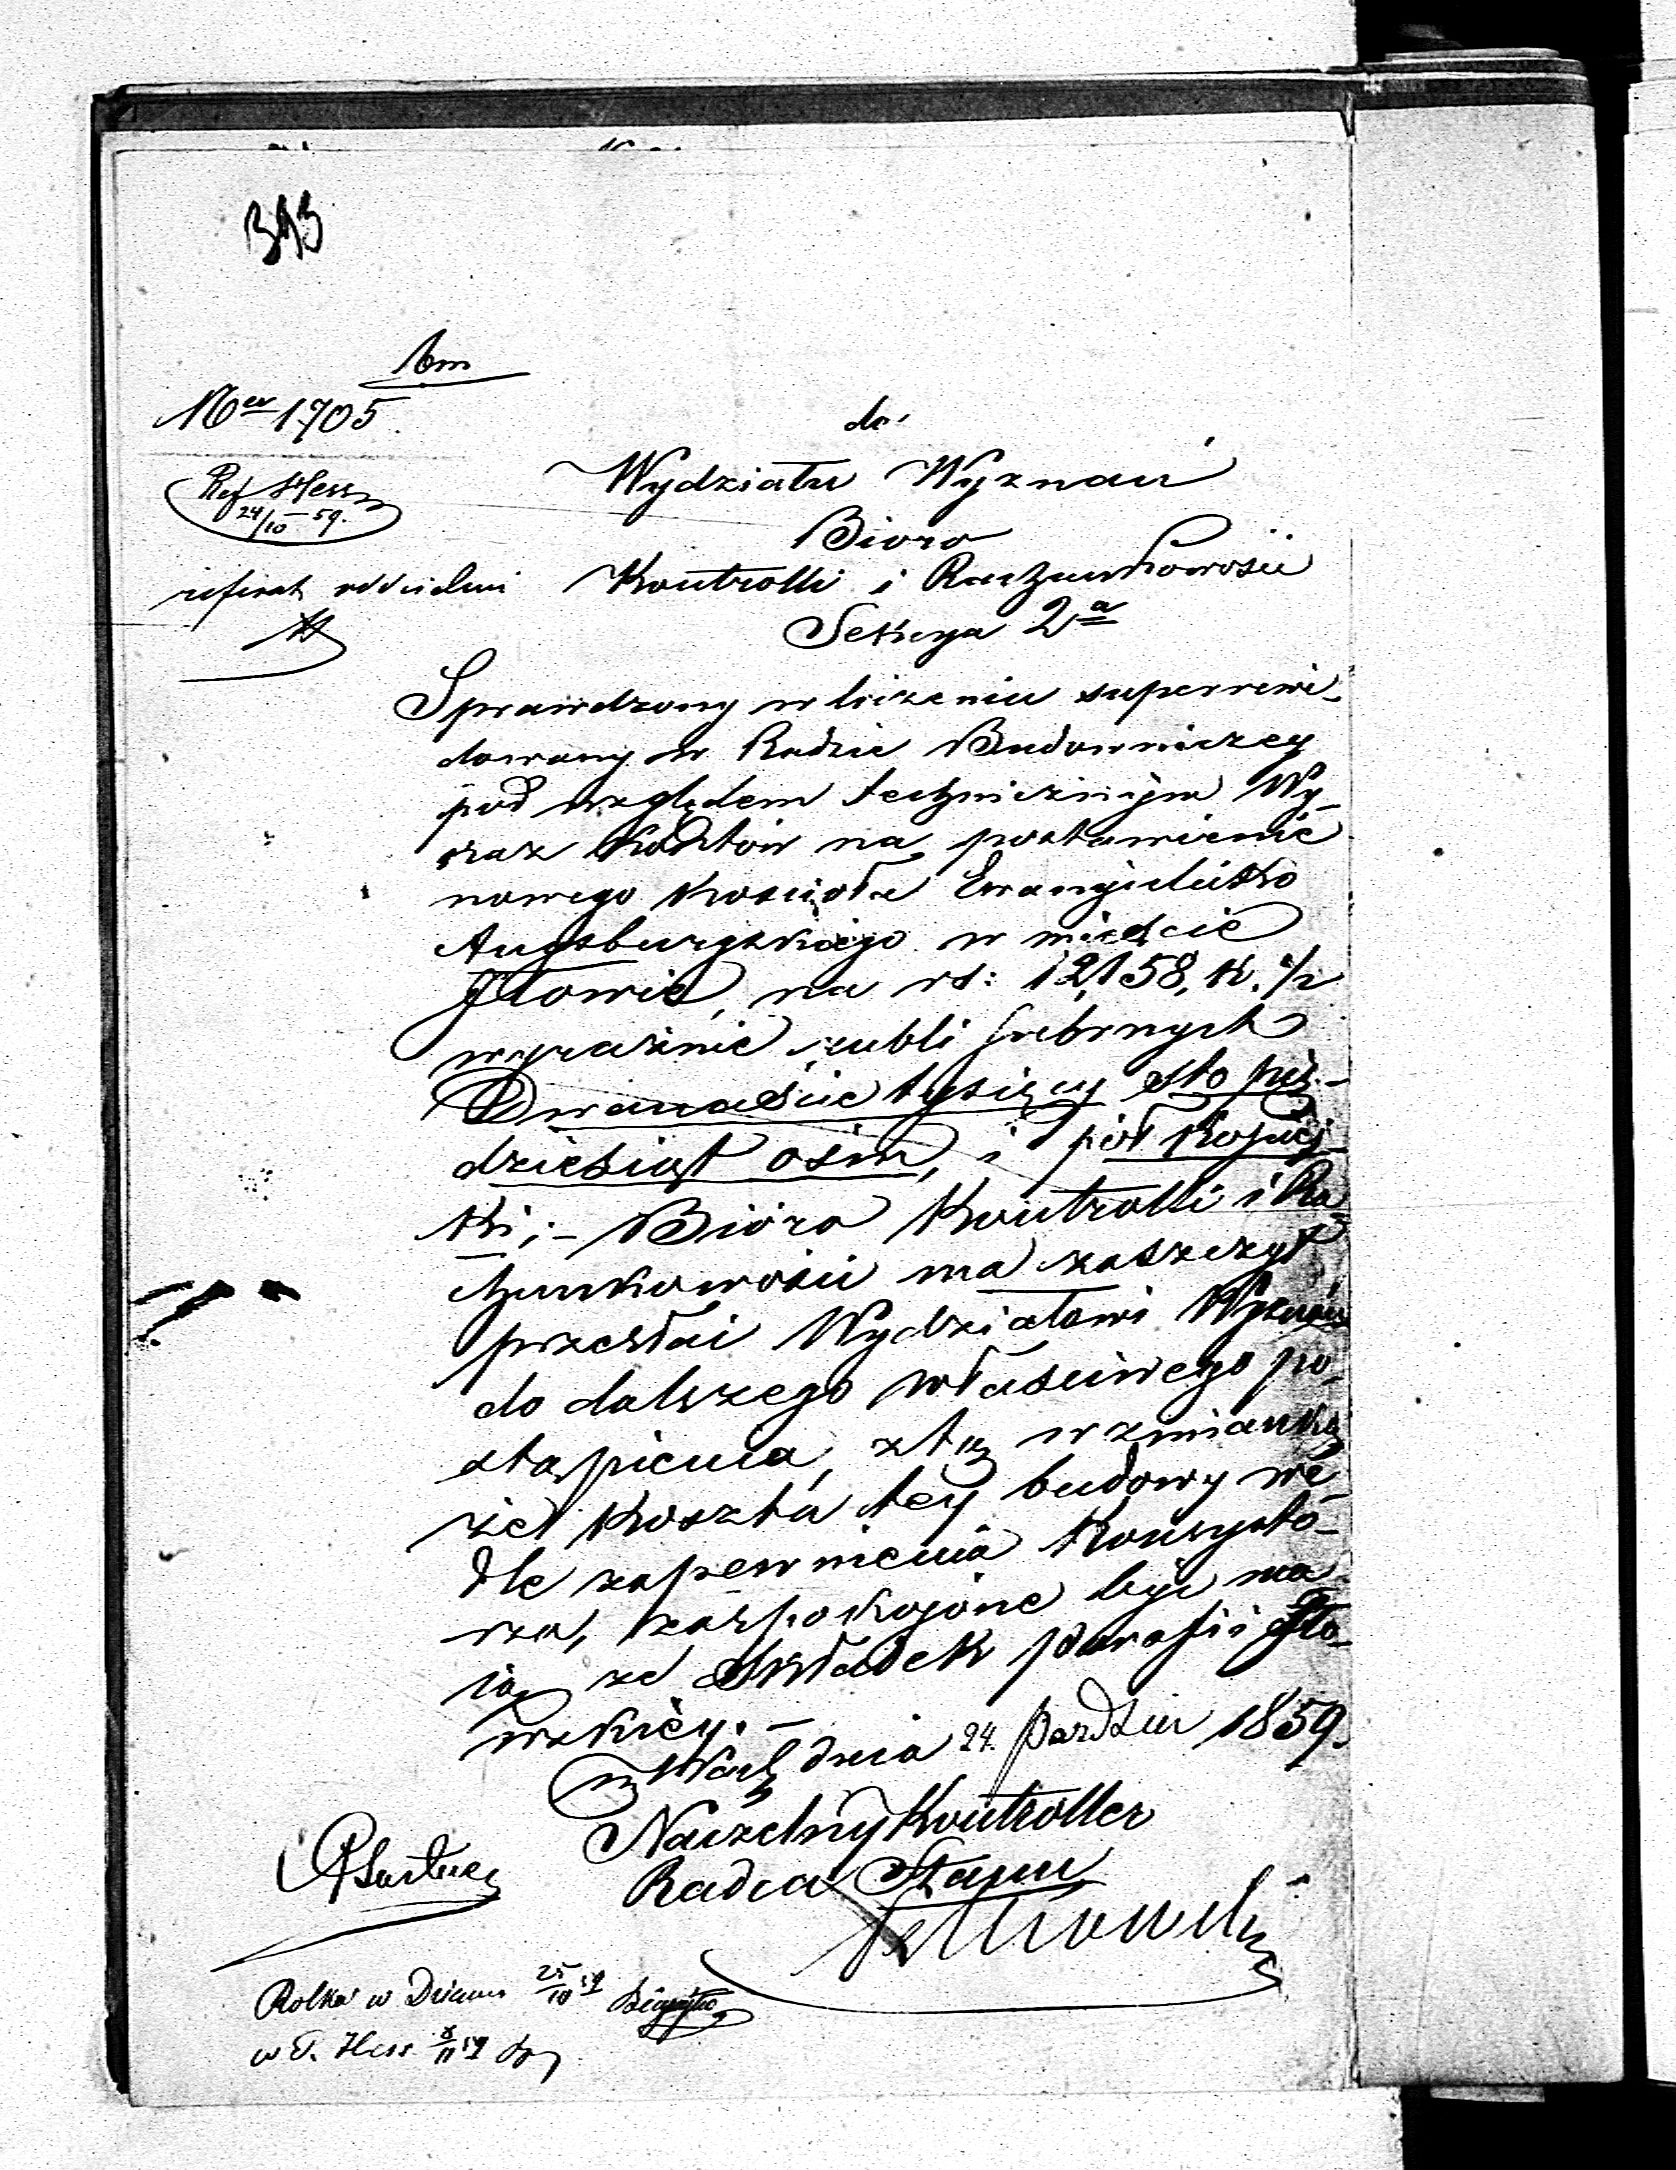 393
Nr 1705.
Ref Hess
24/10 59.
do
Wydziału Wyznań
Bióro
referat oddzielni Kontrolli i Rachunkowości
Sekcya 2a
Sprawdzony w liczeniu superrewi-
dowany w Radzie Budowniczey
pod względem technicznym Wy-
kaz Kosztów na postawienie
nowego Kościoła Ewangielicko
Augsburgskiego w mieście
Iłowie, na rs: 12,158, k. 1/2
wyraźnie rubli srebrnych
Dwanaście tysięcy sto pięć-
dziesiąt ośm, i pół kopiej-
ki; - Bióro Kontrolli i Ra-
chunkowości ma zaszczyt
przesłać Wydziałowi Wyznań
do dalszego właściwego po-
stąpienia, z tą wzmianką
że koszta tey budowy we-
dle zapewnienia Konsysto-
rza, zaspokojone być ma-
ią ze składek parafii Iło-
wskiéy. -
w Warsz dnia 24. Paździer 1859.
Naczelny Kontroller
Radca Stanu
Rolka w Dzienn 25/10 59
w P. Hess 8/11 59